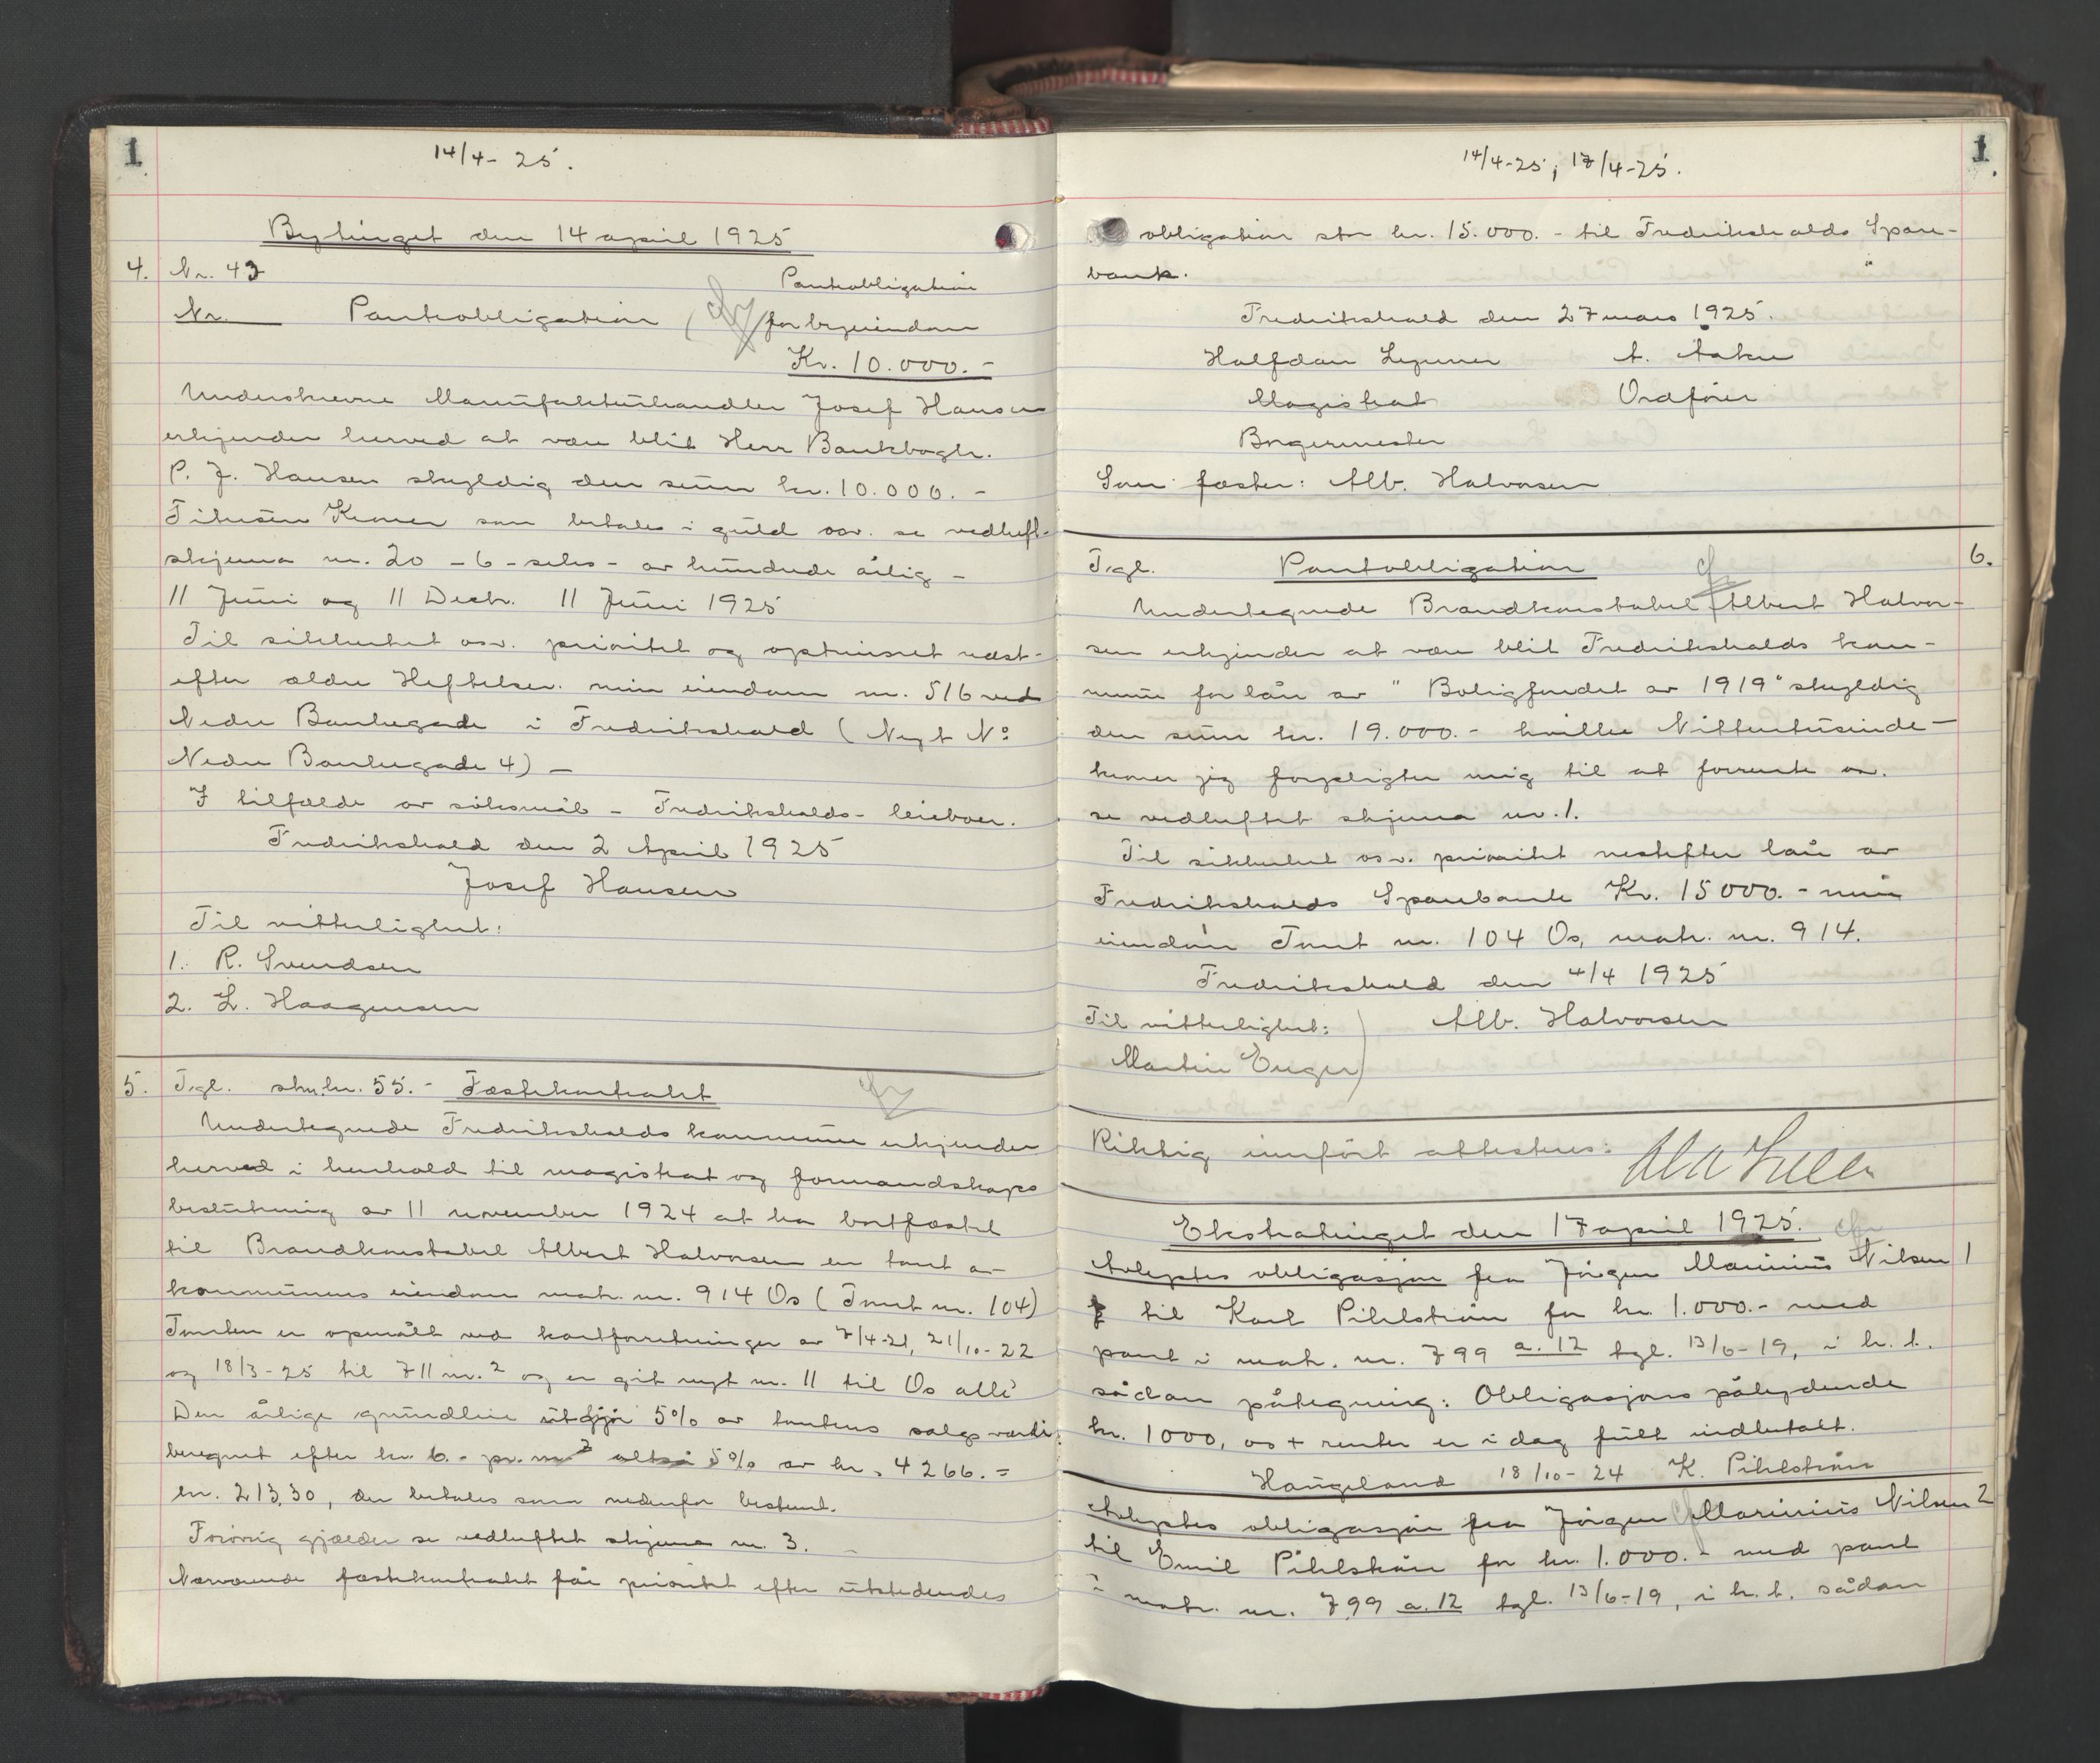 1
14/4-25.
Bytinget den 14 april 1925
4. Nr. 43
Pantobligation
Nr. Pantobligation for byeiendom
Kr. 10.000.-
Underskrevne Manufakturhandler Josef Hansen
erkjender herved at være blit Herr Bankbogh.
P. J. Hansen skyldig den sum kr. 10.000.-
Titusen Kroner som betales i guld osv. se vedheft-
skjema nr. 20 - 6 - seks - av hundrede årlig -
11 Juni og 11 Decbr. 11 Juni 1925
Til sikkerhet osv. prioritet og optrinsret næst-
efter ældre Heftelser. min eiendom nr. 516 ved
Nedre Bankegade i Fredrikshald (Nyt No
Nedre Bankegade 4) -
I tilfælde av söksmål - Fredrikshalds - leieboer.
Fredrikshald den 2 April 1925
Josef Hansen
Til vitterlighet:
1. R. Svendsen
2. L. Haagensen
5. Tgl. stm. kr. 55.- Festekontrakt
Undertegnede Fredrikshalds kommune erkjender
herved i henhold til magistrat og formandskaps
beslutning av 11 november 1924 at ha bortfæstet
til Brandkonstabel Albert Halvorsen en tomt av
kommunens eiendom matr. nr. 914 Os (Tomt nr. 104)
Tomten er opmålt ved kartforretninger av 7/4-21, 21/10-22
og 18/3-25 til 711 m.2 og er git nyt nr. 11 til Os allé
Den årlige grundleie utgjør 5% av tomtens salgsværdi
beregnet efter kr. 6.- pr. m2 altså 5% av kr. 4266.=
kr. 213,30, der betales som nedenfor bestemt.
Forövrig gjælder se vedheftet skjema nr. 3.
Nærværende festekontrakt får prioritet efter utstedendes
14/4-25; 17/4-25.
1.
obligation stor kr. 15.000.- til Fredrikshalds Spare-
bank.
Fredrikshald den 27 mars 1925.
Halfdan A.
Magistrat Ordförer
Borgermester
Som fæster: Alb. Halvorsen
Tgl. Pantobligation 6.
Undertegnede Brandkonstabel Albert Halvor-
sen erkjender at være blit Fredrikshalds kom-
mune for lån av "Boligfondet av 1919" skyldig
den sum kr. 19.000.- hvilke Nittentusinde-
kroner jeg forpligter mig til at forrente osv.
se vedheftet skjema nr. 1.
Til sikkerhet osv. prioritet nestefter lån av
Fredrikshalds Sparebank Kr. 15000.- min
eiendom Tomt nr. 104 Os, matr. nr. 914.
Fredrikshald den 4/4 1925
Til vitterlighet: Alb. Halvorsen
Martin Enger
Riktig innført attesteres:
Ekstratinget den 17 april 1925.
Avlyst obligasjon fra Jörgen Marinius Nilsen 1
til Karl Pihlström for kr. 1.000.- med
pant i matr. nr. 799 a. 12 tgl. 13/6-19, i h. t.
sådan påtegning: Obligasjons pålydende
kr. 1000, os + renter er i dag fullt indbetalt.
Haugeland 18/10-24 K. Pihlström
Avlyst obligasjon fra Jörgen Marinius Nilsen 2
til Emil Pihlström for kr. 1.000.- med pant
i matr. nr. 799 a. 12 tgl. 13/6-19, i h. t. sådan